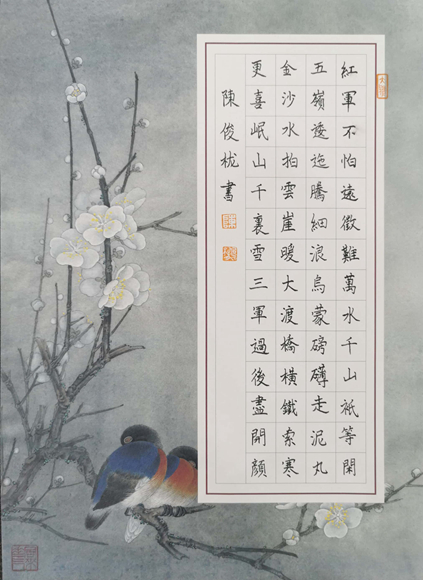 紅軍不怕遠徵難萬水千山祇等閑
五嶺逶迤騰細浪烏蒙磅礴走泥丸
金沙水拍雲崖暖大渡橋橫鐵索寒
更喜岷山千裏雪三軍過後盡開顏
陳俊栊書